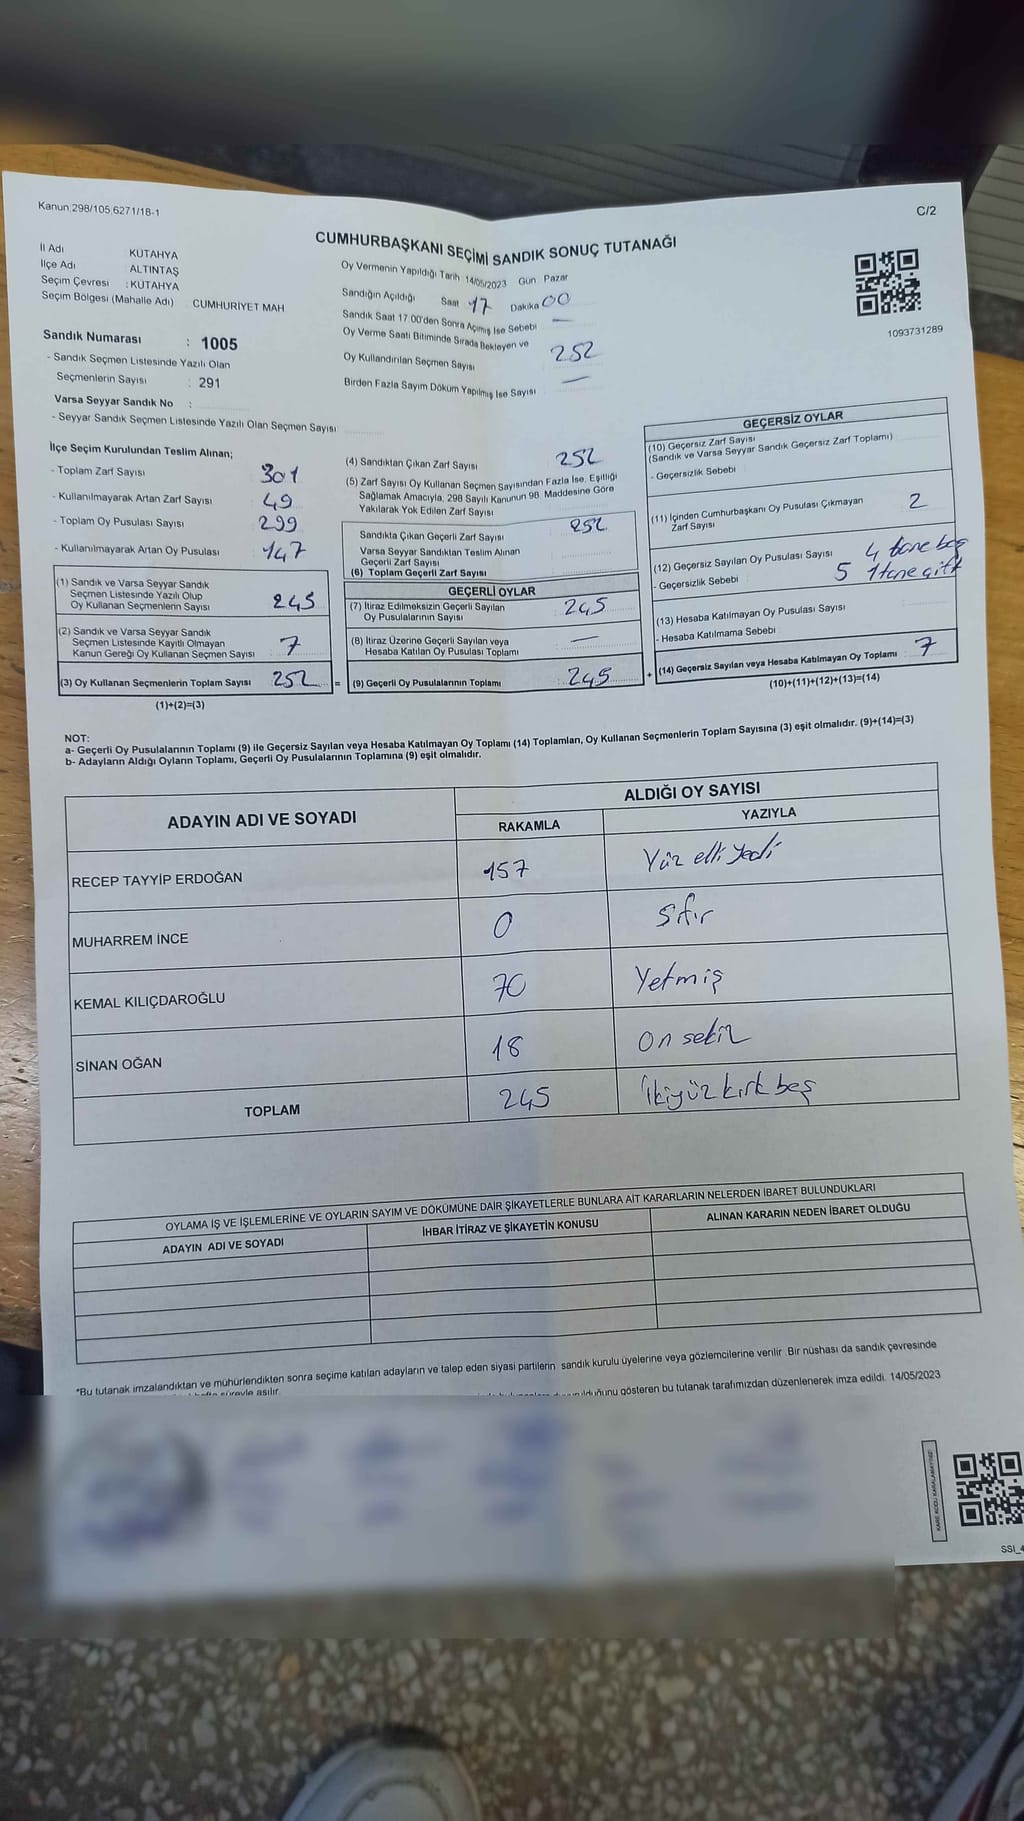 Kanun;298/105;6271/18-1
C/2
CUMHURBAŞKANI SEÇİMİ SANDIK SONUÇ TUTANAĞI
İl Adı KÜTAHYA
İlçe Adı ALTINTAŞ
Seçim Çevresi : KÜTAHYA
Seçim Bölgesi (Mahalle Adı) CUMHURİYET MAH
Oy Vermenin Yapıldığı Tarih 14/05/2023 Gün Pazar
Sandığın Açıldığı Saat 17 Dakika 00
Sandık Saat 17.00'den Sonra Açımış İse Sebebi —
Oy Verme Saati Bitiminde Sırada Bekleyen ve
Oy Kullandırılan Seçmen Sayısı 252
Birden Fazla Sayım Döküm Yapılmış İse Sayısı —
1093731289
Sandık Numarası : 1005
- Sandık Seçmen Listesinde Yazılı Olan
Seçmenlerin Sayısı : 291
Varsa Seyyar Sandık No :
- Seyyar Sandık Seçmen Listesinde Yazılı Olan Seçmen Sayısı
İlçe Seçim Kurulundan Teslim Alınan;
- Toplam Zarf Sayısı 301
- Kullanılmayarak Artan Zarf Sayısı 49
- Toplam Oy Pusulası Sayısı 299
- Kullanılmayarak Artan Oy Pusulası 147
(1) Sandık ve Varsa Seyyar Sandık
Seçmen Listesinde Yazılı Olup
Oy Kullanan Seçmenlerin Sayısı 245
(2) Sandık ve Varsa Seyyar Sandık
Seçmen Listesinde Kayıtlı Olmayan
Kanun Gereği Oy Kullanan Seçmen Sayısı 7
(3) Oy Kullanan Seçmenlerin Toplam Sayısı 252 =
(1)+(2)=(3)
(4) Sandıktan Çıkan Zarf Sayısı 252
(5) Zarf Sayısı Oy Kullanan Seçmen Sayısından Fazla İse, Eşitliği
Sağlamak Amacıyla, 298 Sayılı Kanunun 98. Maddesine Göre
Yakılarak Yok Edilen Zarf Sayısı
Sandıkta Çıkan Geçerli Zarf Sayısı 252
Varsa Seyyar Sandıktan Teslim Alınan
Geçerli Zarf Sayısı
(6) Toplam Geçerli Zarf Sayısı
GEÇERLİ OYLAR
(7) İtiraz Edilmeksizin Geçerli Sayılan
Oy Pusulalarının Sayısı 245
(8) İtiraz Üzerine Geçerli Sayılan veya
Hesaba Katılan Oy Pusulası Toplamı —
(9) Geçerli Oy Pusulalarının Toplamı 245 +
GEÇERSİZ OYLAR
(10) Geçersiz Zarf Sayısı
(Sandık ve Varsa Seyyar Sandık Geçersiz Zarf Toplamı)
- Geçersizlik Sebebi
(11) İçinden Cumhurbaşkanı Oy Pusulası Çıkmayan
Zarf Sayısı 2
(12) Geçersiz Sayılan Oy Pusulası Sayısı 4 tane boş
- Geçersizlik Sebebi 5 1 tane çift
(13) Hesaba Katılmayan Oy Pusulası Sayısı
- Hesaba Katılmama Sebebi
(14) Geçersiz Sayılan veya Hesaba Katılmayan Oy Toplamı 7
(10)+(11)+(12)+(13)=(14)
NOT:
a- Geçerli Oy Pusulalarının Toplamı (9) ile Geçersiz Sayılan veya Hesaba Katılmayan Oy Toplamı (14) Toplamları, Oy Kullanan Seçmenlerin Toplam Sayısına (3) eşit olmalıdır. (9)+(14)=(3)
b- Adayların Aldığı Oyların Toplamı, Geçerli Oy Pusulalarının Toplamına (9) eşit olmalıdır.
ADAYIN ADI VE SOYADI ALDIĞI OY SAYISI
RAKAMLA YAZIYLA
RECEP TAYYİP ERDOĞAN 157 Yüz elli yedi
MUHARREM İNCE 0 Sıfır
KEMAL KILIÇDAROĞLU 70 Yetmiş
SİNAN OĞAN 18 On sekiz
TOPLAM 245 İkiyüz kırk beş
OYLAMA İŞ VE İŞLEMLERİNE VE OYLARIN SAYIM VE DÖKÜMÜNE DAİR ŞİKAYETLERLE BUNLARA AİT KARARLARIN NELERDEN İBARET BULUNDUKLARI
ADAYIN ADI VE SOYADI İHBAR İTİRAZ VE ŞİKAYETİN KONUSU ALINAN KARARIN NEDEN İBARET OLDUĞU
*Bu tutanak imzalandıktan ve mühürlendikten sonra seçime katılan adayların ve talep eden siyasi partilerin sandık kurulu üyelerine veya gözlemcilerine verilir Bir nüshası da sandık çevresinde
süreyle asılır.
gösteren bu tutanak tarafımızdan düzenlenerek imza edildi. 14/05/2023
KARE KODU KARALAMAYINIZ!
SSI_4